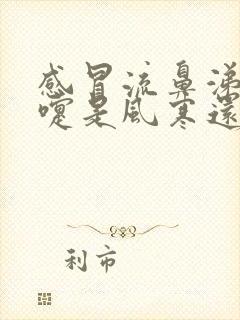 感冒流鼻涕
嚏是風寒還
利市